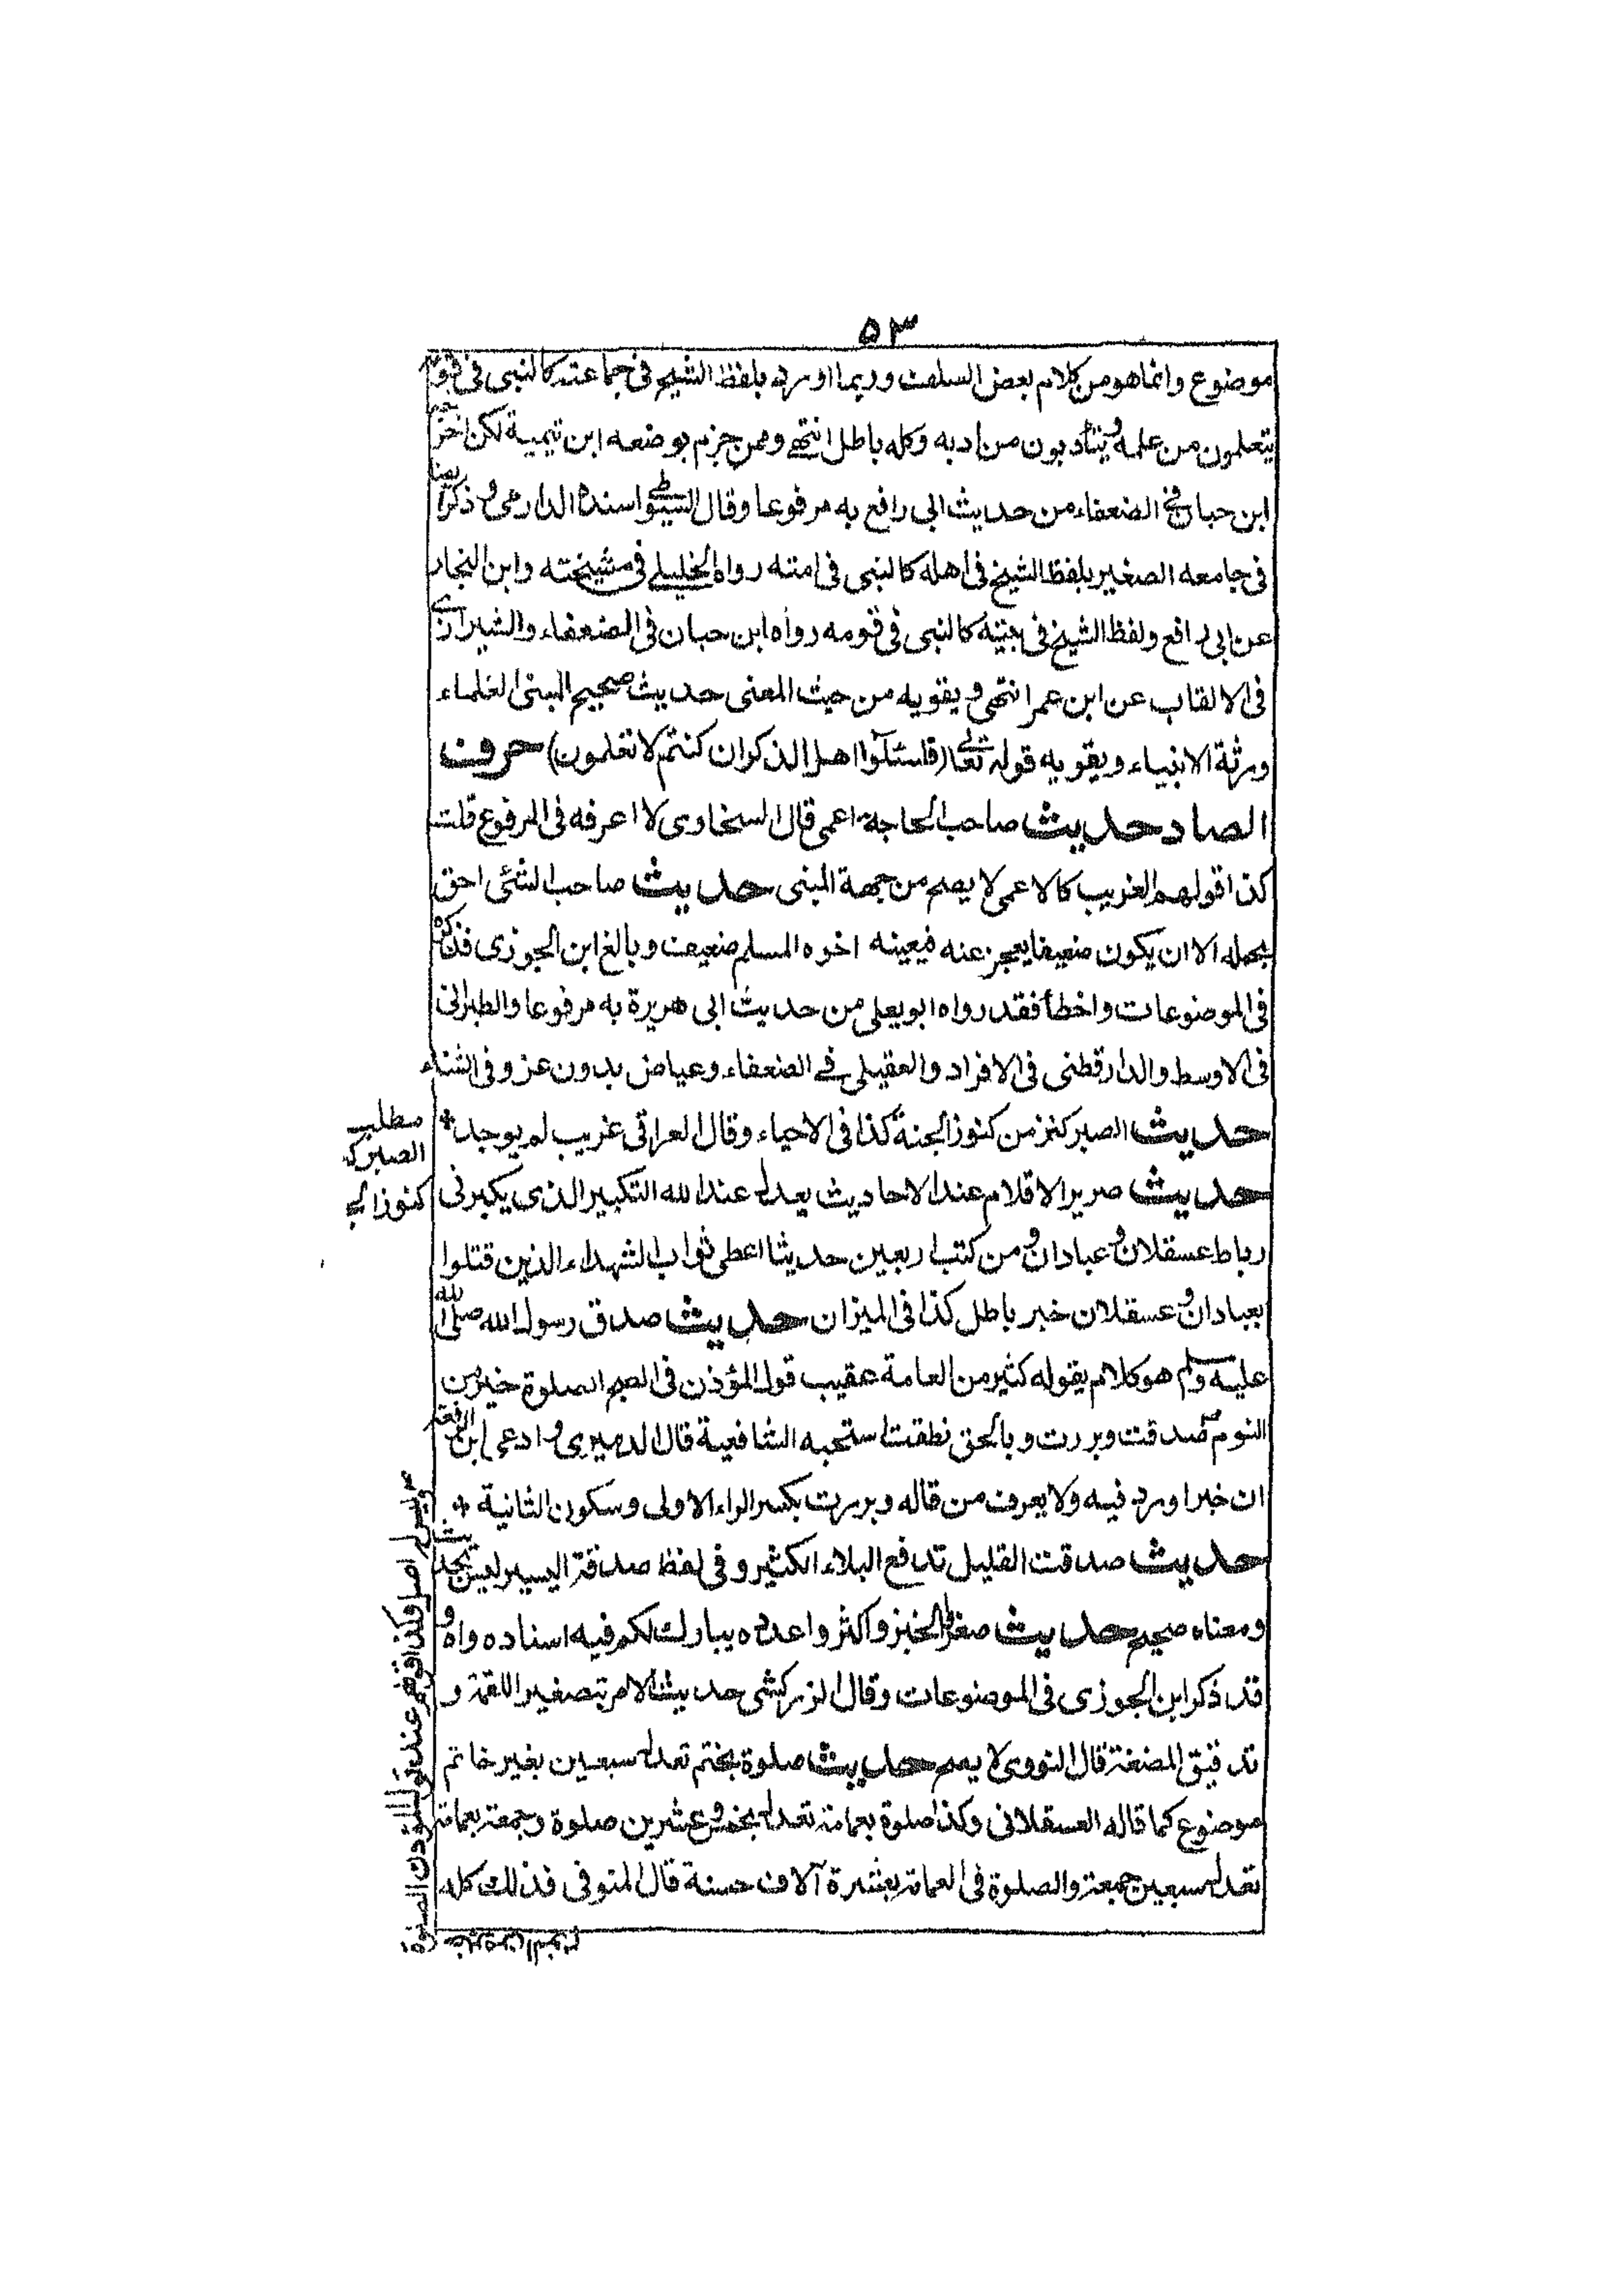 ٥٣
موضوع وانما هو من كلام بعض السلف وربما اورد بلفظ الشيخ فى جماعته كالنبى فى قومه
يتعلمون من علمه ويتأدبون من ادبه وكله باطل انتهى وممن جزم بوضعه ابن تيمية لكن اخرجه
ابن حبان فى الضعفاء من حديث ابى رافع به مرفوعا وقال السيوطى اسنده الدارمى وذكر ايضا
فى جامعه الصغير بلفظ الشيخ فى اهله كالنبى فى امته رواه الخليلى فى مشيخته وابن النجار
عن ابى رافع ولفظ الشيخ فى بيته كالنبى فى قومه رواه ابن حبان فى الضعفاء والشيرازى
فى الالقاب عن ابن عمر انتهى ويقويه من حيث المعنى حديث صحيح المبنى العلماء
ورثة الانبياء ويقويه قوله تعالى (فاسئلوا اهل الذكر ان كنتم لا تعلمون) حرف
الصاد حديث صاحب الحاجة اعمى قال السخاوى لا اعرفه فى المرفوع قلت
كذا قولهم الغريب كالاعمى لا يصح من جهة المبنى حديث صاحب الشئى احق
بحمله الا ان يكون ضعيفا يعجز عنه فيعينه اخوه المسلم ضعيف وبالغ ابن الجوزى فذكره
فى الموضوعات واخطأ فقد رواه ابو يعلى من حديث ابى هريرة به مرفوعا والطبرانى
فى الاوسط والدارقطنى فى الافراد والعقيلى فى الضعفاء وعياض بدون عزو فى الشفاء
حديث الصبر كنز من كنوز الجنة كذا فى الاحياء وقال العراقى غريب لم يوجد *
مطلب
الصبر ك
كنوز الج
حديث صرير الاقلام عند الاحاديث يعدل عند الله التكبير الذى يكبر فى
رباط عسقلان وعبادان ومن كتب اربعين حديثا اعطى ثواب الشهداء الذين قتلوا
بعبادان وعسقلان خبر باطل كذا فى الميزان حديث صدق رسول الله صلى الله
عليه وسلم هو كلام يقوله كثير من العامة عقيب قول المؤذن فى الصبح الصلوة خير من
النوم صدقت وبررت وبالحق نطقت استحبه الشافعية قال الدميرى وادعى ابن الرفعة
ان خبرا ورد فيه ولا يعرف من قاله وبررت بكسر الراء الاولى وسكون الثانية *
وليس له اصل وكذا قولهم عند قول المؤذن الصلوة
حديث صدقت القليل تدفع البلاء الكثير وفى لفظ صدقة اليسير ليس بحديث
ومعناه صحيح حديث صغروا الخبز واكثروا عدده يبارك لكم فيه اسناده واه و
قد ذكر ابن الجوزى فى الموضوعات وقال الزركشى حديث الامر بتصغير اللقمة و
تدقيق المضغة قال النووى لا يصح حديث صلوة بختم تعدل سبعين بغير خاتم
موضوع كما قاله العسقلانى وكذا صلوة بعمامة تعدل بخمس وعشرين صلوة وجمعة بعمامة
تعدل سبعين جمعة والصلوة فى العمامة بعشرة آلاف حسنة قال المنوفى فذلك كله